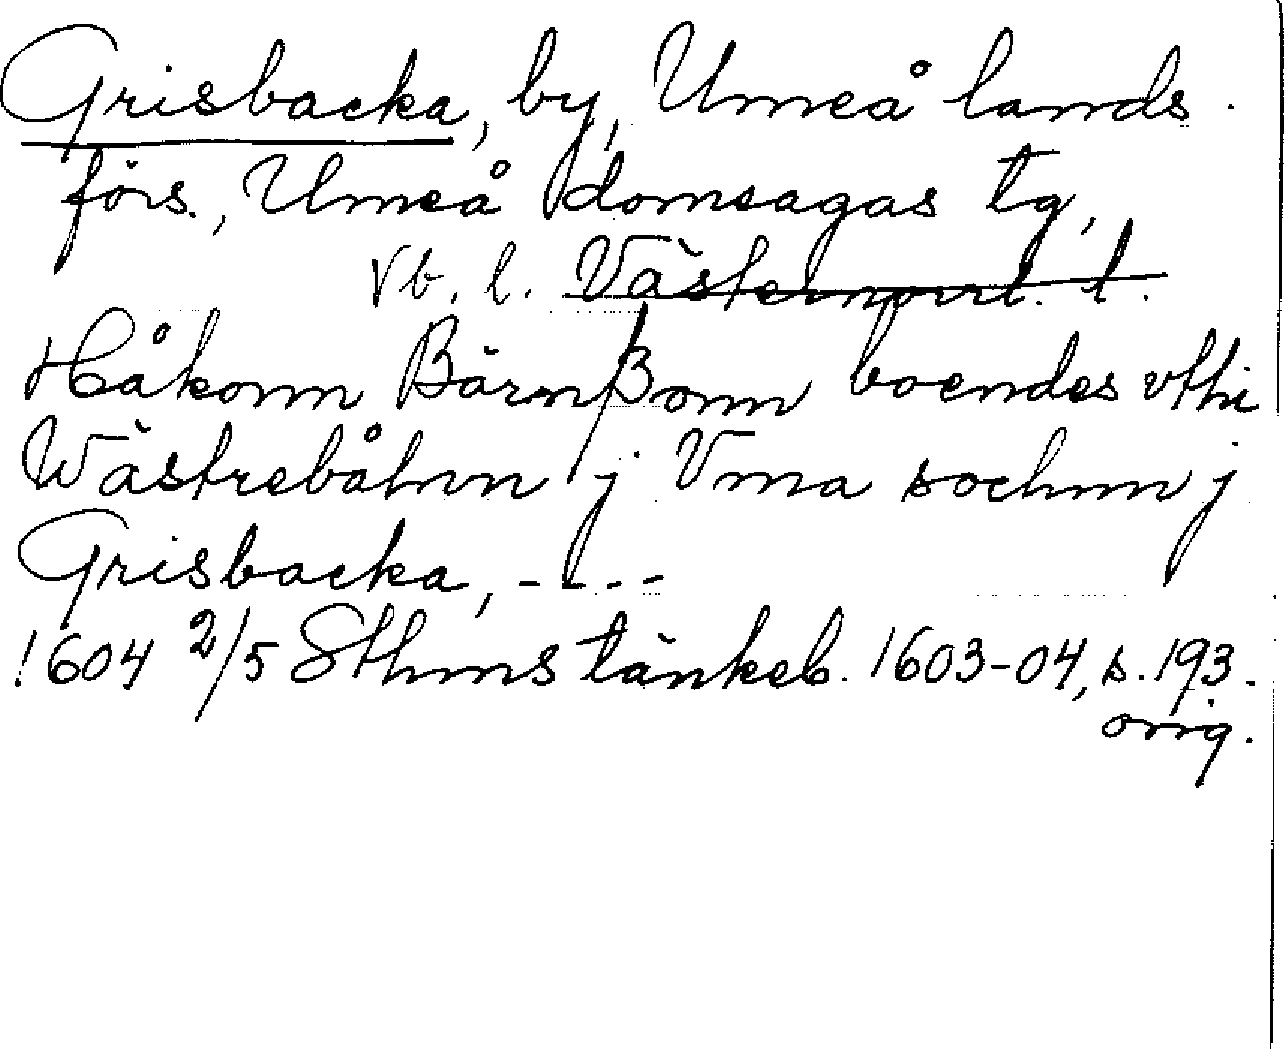 Grisbacka, by, Umeå lands.
förs., Umeå domsagas tg,
Vb. l. Västernorrl. l.
Håkonn Bärnßonn boendes vthi
Wästrebåtnn j Vma sochnn j
Grisbacka, - - - -
1604 2/5 Sthms tänkeb. 1603-04, s. 193.
orig.